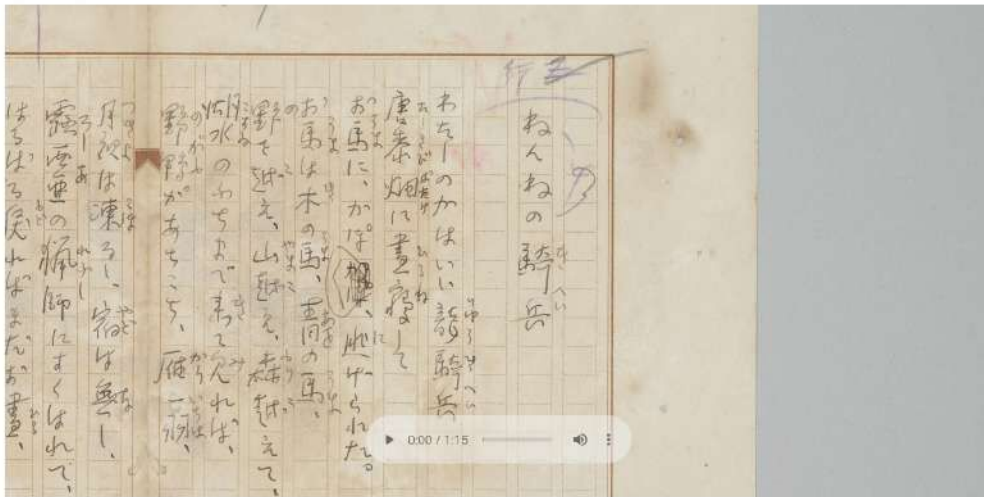 ねんねの騎兵
わたしのかはいい龍騎兵
唐黍畑に晝寢して
お馬に、かぽ、逃げられた。
お馬は木の馬、青の馬、
野を越え、山越え、森越えて、
湖水のふちまで来て見れば、
野鴨があちこち、雁一羽、
月夜は凍るし、宿は無し、
露西亜の猟師にすくはれて、
はるばる戻ればまだお晝、
0:00 / 1:15